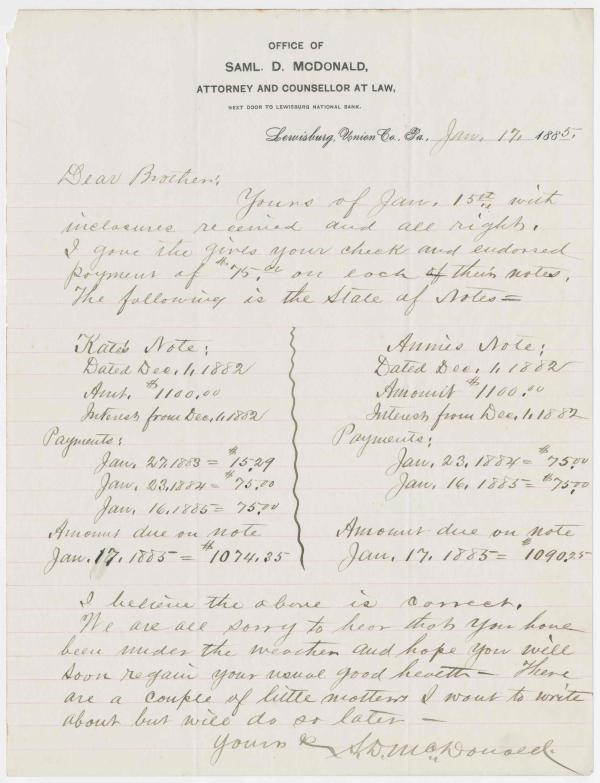 OFFICE OF
SAML. D. MCDONALD,
ATTORNEY AND COUNSELLOR AT LAW,
NEXT DOOR TO LEWISBURG NATIONAL BANK.
Lewisburg, Union Co. Pa. Jan. 17. 1885.
Dear Brother:
Yours of Jan. 15th with
inclosures received and all right.
I gave the girls your check and endorsed
payment of $75.00 on each of their notes.
The following is the State of Notes=
Kate's Note:
Dated Dec. 1, 1882
Amt. $1100.00
Interest from Dec. 1, 1882
Payments:
Jan. 27. 1883 = $15.29
Jan. 23. 1884 = $75.00
Jan. 16. 1885 = 75.00
Amount due on note
Jan. 17. 1885 = $1074.35
Annies Note:
Dated Dec. 1, 1882
Amount $1100.00
Interest from Dec. 1, 1882
Payments:
Jan. 23. 1884 = $75.00
Jan. 16. 1885 = $75.00
Amount due on note
Jan. 17. 1885 = $1090.25
I believe the above is correct.
We are all sorry to hear that you have
been under the weather and hope you will
soon regain your usual good health — There
are a couple of little matters I want to write
about but will do so later —
Yours &c S. D. McDonald.